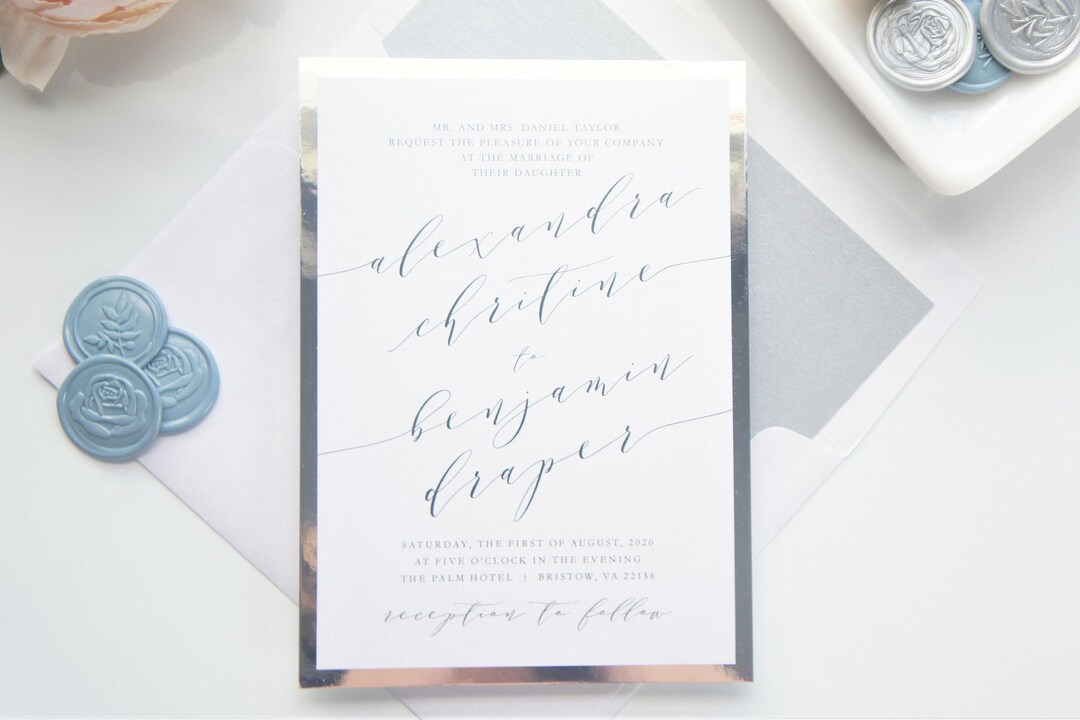 MR. AND MRS. DANIEL TAYLOR
REQUEST THE PLEASURE OF YOUR COMPANY
AT THE MARRIAGE OF
THEIR DAUGHTER
alexandra
chritine
to
benjamin
draper
SATURDAY, THE FIRST OF AUGUST, 2020
AT FIVE O'CLOCK IN THE EVENING
THE PALM HOTEL | BRISTOW, VA 22136
reception to follow